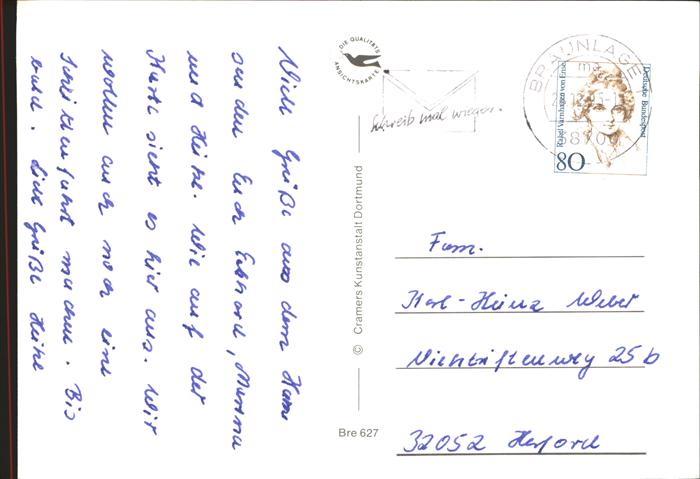 Viele Grüße aus dem Harz
senden Euch Eckhard, Martina
und Heike. Wie auf der
Karte sieht es hier aus. Wir
wollen auch noch eine
Schlittenfahrt machen. Bis
bald. Liebe Grüße Heike
DIE QUALITÄTS
ANSICHTSKARTE
Schreib mal wieder.
BRAUNLAGE
Rahel Varnhagen von Ense
Deutsche Bundespost
80
© Cramers Kunstanstalt Dortmund
Bre 627
Fam.
Karl-Heinz Weber
Viehtriftenweg 25 b
32052 Herford